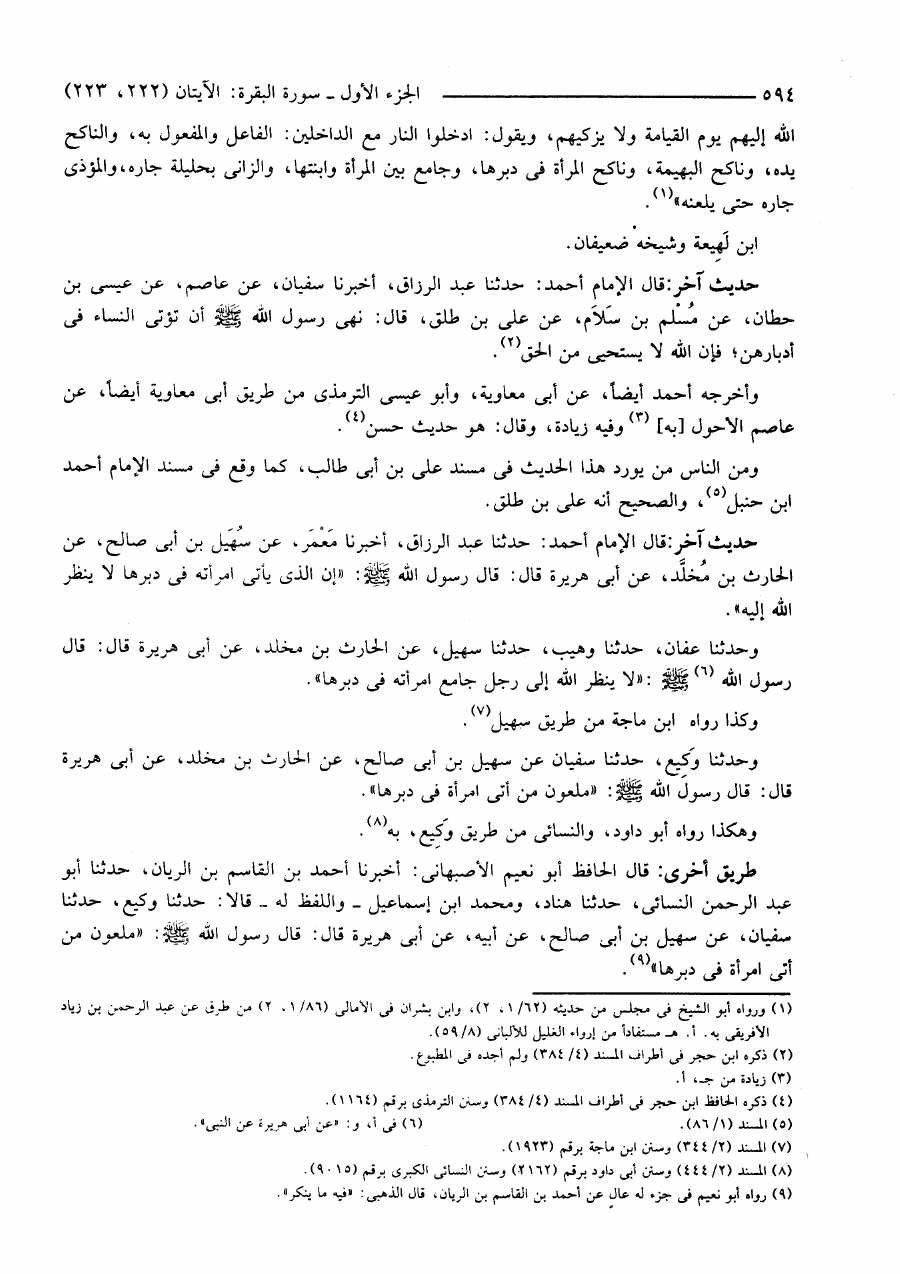 ٥٩٤ ـــــــــــــــــــــــ الجزء الأول ـ سورة البقرة: الآيتان (٢٢٢، ٢٢٣)
الله إليهم يوم القيامة ولا يزكيهم، ويقول: ادخلوا النار مع الداخلين: الفاعل والمفعول به، والناكح
يده، وناكح البهيمة، وناكح المرأة فى دبرها، وجامع بين المرأة وابنتها، والزانى بحليلة جاره،والمؤذى
جاره حتى يلعنه»(١).
ابن لَهِيعة وشيخه ضعيفان.
حديث آخر:قال الإمام أحمد: حدثنا عبد الرزاق، أخبرنا سفيان، عن عاصم، عن عيسى بن
حطان، عن مُسْلم بن سَلاَم، عن على بن طلق، قال: نهى رسول الله ﷺ أن تؤتى النساء فى
أدبارهن؛ فإن الله لا يستحيى من الحق(٢).
وأخرجه أحمد أيضاً، عن أبى معاوية، وأبو عيسى الترمذى من طريق أبى معاوية أيضاً، عن
عاصم الأحول [به] (٣) وفيه زيادة، وقال: هو حديث حسن(٤).
ومن الناس من يورد هذا الحديث فى مسند على بن أبى طالب، كما وقع فى مسند الإمام أحمد
ابن حنبل(٥)، والصحيح أنه على بن طلق.
حديث آخر:قال الإمام أحمد: حدثنا عبد الرزاق، أخبرنا مَعْمَر، عن سُهَيل بن أبى صالح، عن
الحارث بن مُخلَّد، عن أبى هريرة قال: قال رسول الله ﷺ: «إن الذى يأتى امرأته فى دبرها لا ينظر
الله إليه».
وحدثنا عفان، حدثنا وهيب، حدثنا سهيل، عن الحارث بن مخلد، عن أبى هريرة قال: قال
رسول الله (٦) ﷺ :«لا ينظر الله إلى رجل جامع امرأته فى دبرها».
وكذا رواه ابن ماجة من طريق سهيل(٧).
وحدثنا وَكِيع، حدثنا سفيان عن سهيل بن أبى صالح، عن الحارث بن مخلد، عن أبى هريرة
قال: قال رسول الله ﷺ: «ملعون من أتى امرأة فى دبرها».
وهكذا رواه أبو داود، والنسائى من طريق وَكِيع، به(٨).
طريق أخرى: قال الحافظ أبو نعيم الأصبهانى: أخبرنا أحمد بن القاسم بن الريان، حدثنا أبو
عبد الرحمن النسائى، حدثنا هناد، ومحمد ابن إسماعيل ـ واللفظ له ـ قالا: حدثنا وكيع، حدثنا
سفيان، عن سهيل بن أبى صالح، عن أبيه، عن أبى هريرة قال: قال رسول الله ﷺ: «ملعون من
أتى امرأة فى دبرها»(٩).
(١) ورواه أبو الشيخ فى مجلس من حديثه (١/٦٢، ٢)، وابن بشران فى الأمالى (١/٨٦، ٢) من طرق عن عبد الرحمن بن زياد
الأفريقى به. أ. هـ مستفاداً من إرواء الغليل للألبانى (٥٩/٨).
(٢) ذكره ابن حجر فى أطراف المسند (٣٨٤/٤) ولم أجده فى المطبوع.
(٣) زيادة من جـ، أ.
(٤) ذكره الحافظ ابن حجر فى أطراف المسند (٣٨٤/٤) وسنن الترمذى برقم (١١٦٤).
(٥) المسند (٨٦/١). (٦) فى أ، و: «عن أبى هريرة عن النبى».
(٧) المسند (٣٤٤/٢) وسنن ابن ماجة برقم (١٩٢٣).
(٨) المسند (٤٤٤/٢) وسنن أبى داود برقم (٢١٦٢) وسنن النسائى الكبرى برقم (٩٠١٥).
(٩) رواه أبو نعيم فى جزء له عالٍ عن أحمد بن القاسم بن الريان، قال الذهبى: «فيه ما ينكر».